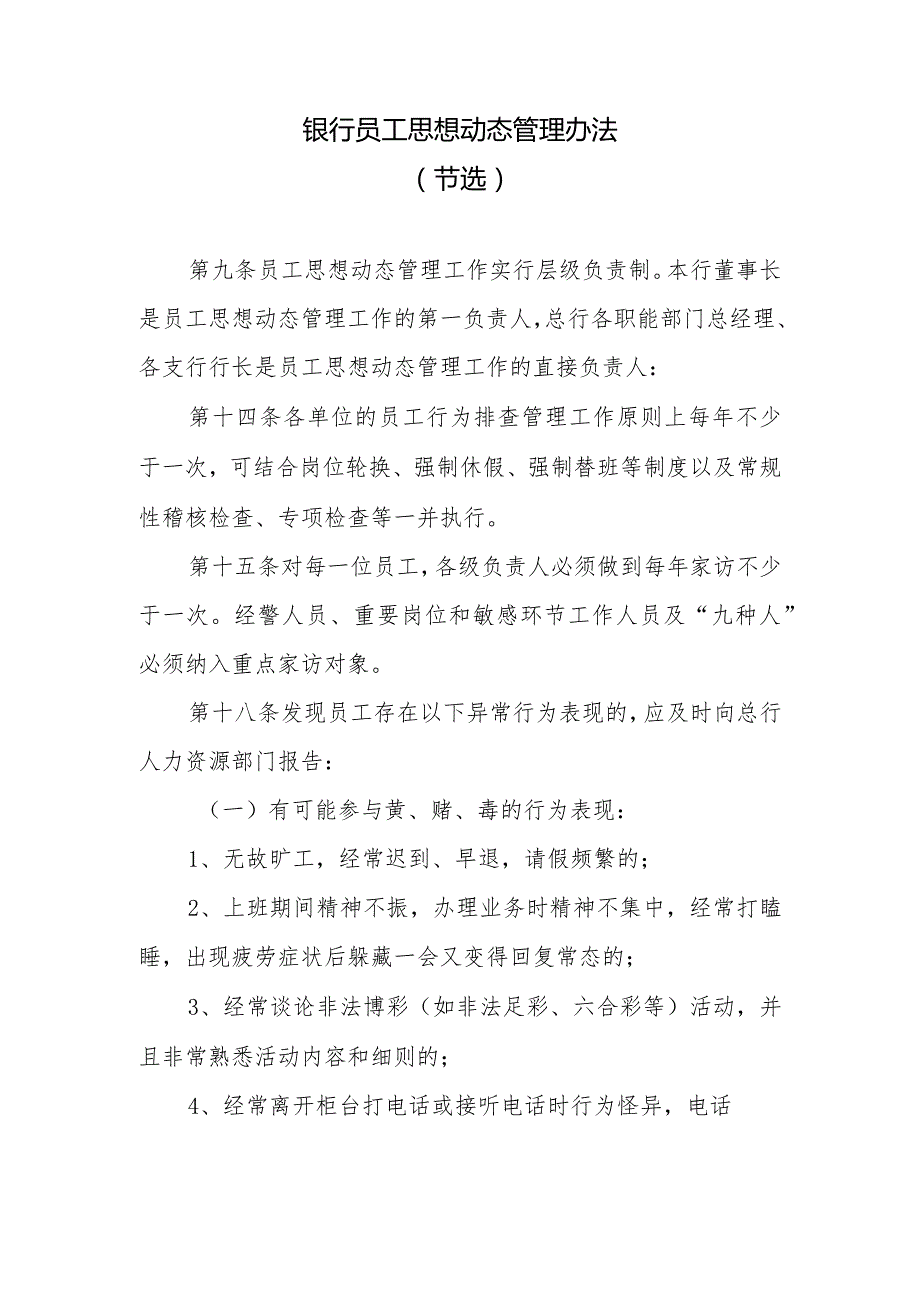 银行员工思想动态管理办法
（节选）
第九条员工思想动态管理工作实行层级负责制。本行董事长
是员工思想动态管理工作的第一负责人，总行各职能部门总经理、
各支行行长是员工思想动态管理工作的直接负责人：
第十四条各单位的员工行为排查管理工作原则上每年不少
于一次，可结合岗位轮换、强制休假、强制替班等制度以及常规
性稽核检查、专项检查等一并执行。
第十五条对每一位员工，各级负责人必须做到每年家访不少
于一次。经警人员、重要岗位和敏感环节工作人员及“九种人”
必须纳入重点家访对象。
第十八条发现员工存在以下异常行为表现的，应及时向总行
人力资源部门报告：
（一）有可能参与黄、赌、毒的行为表现：
1、无故旷工，经常迟到、早退，请假频繁的；
2、上班期间精神不振，办理业务时精神不集中，经常打瞌
睡，出现疲劳症状后躲藏一会又变得回复常态的；
3、经常谈论非法博彩（如非法足彩、六合彩等）活动，并
且非常熟悉活动内容和细则的；
4、经常离开柜台打电话或接听电话时行为怪异，电话